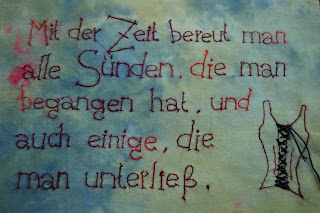 Mit der Zeit bereut man
alle Sünden, die man
begangen hat, und
auch einige, die
man unterließ.